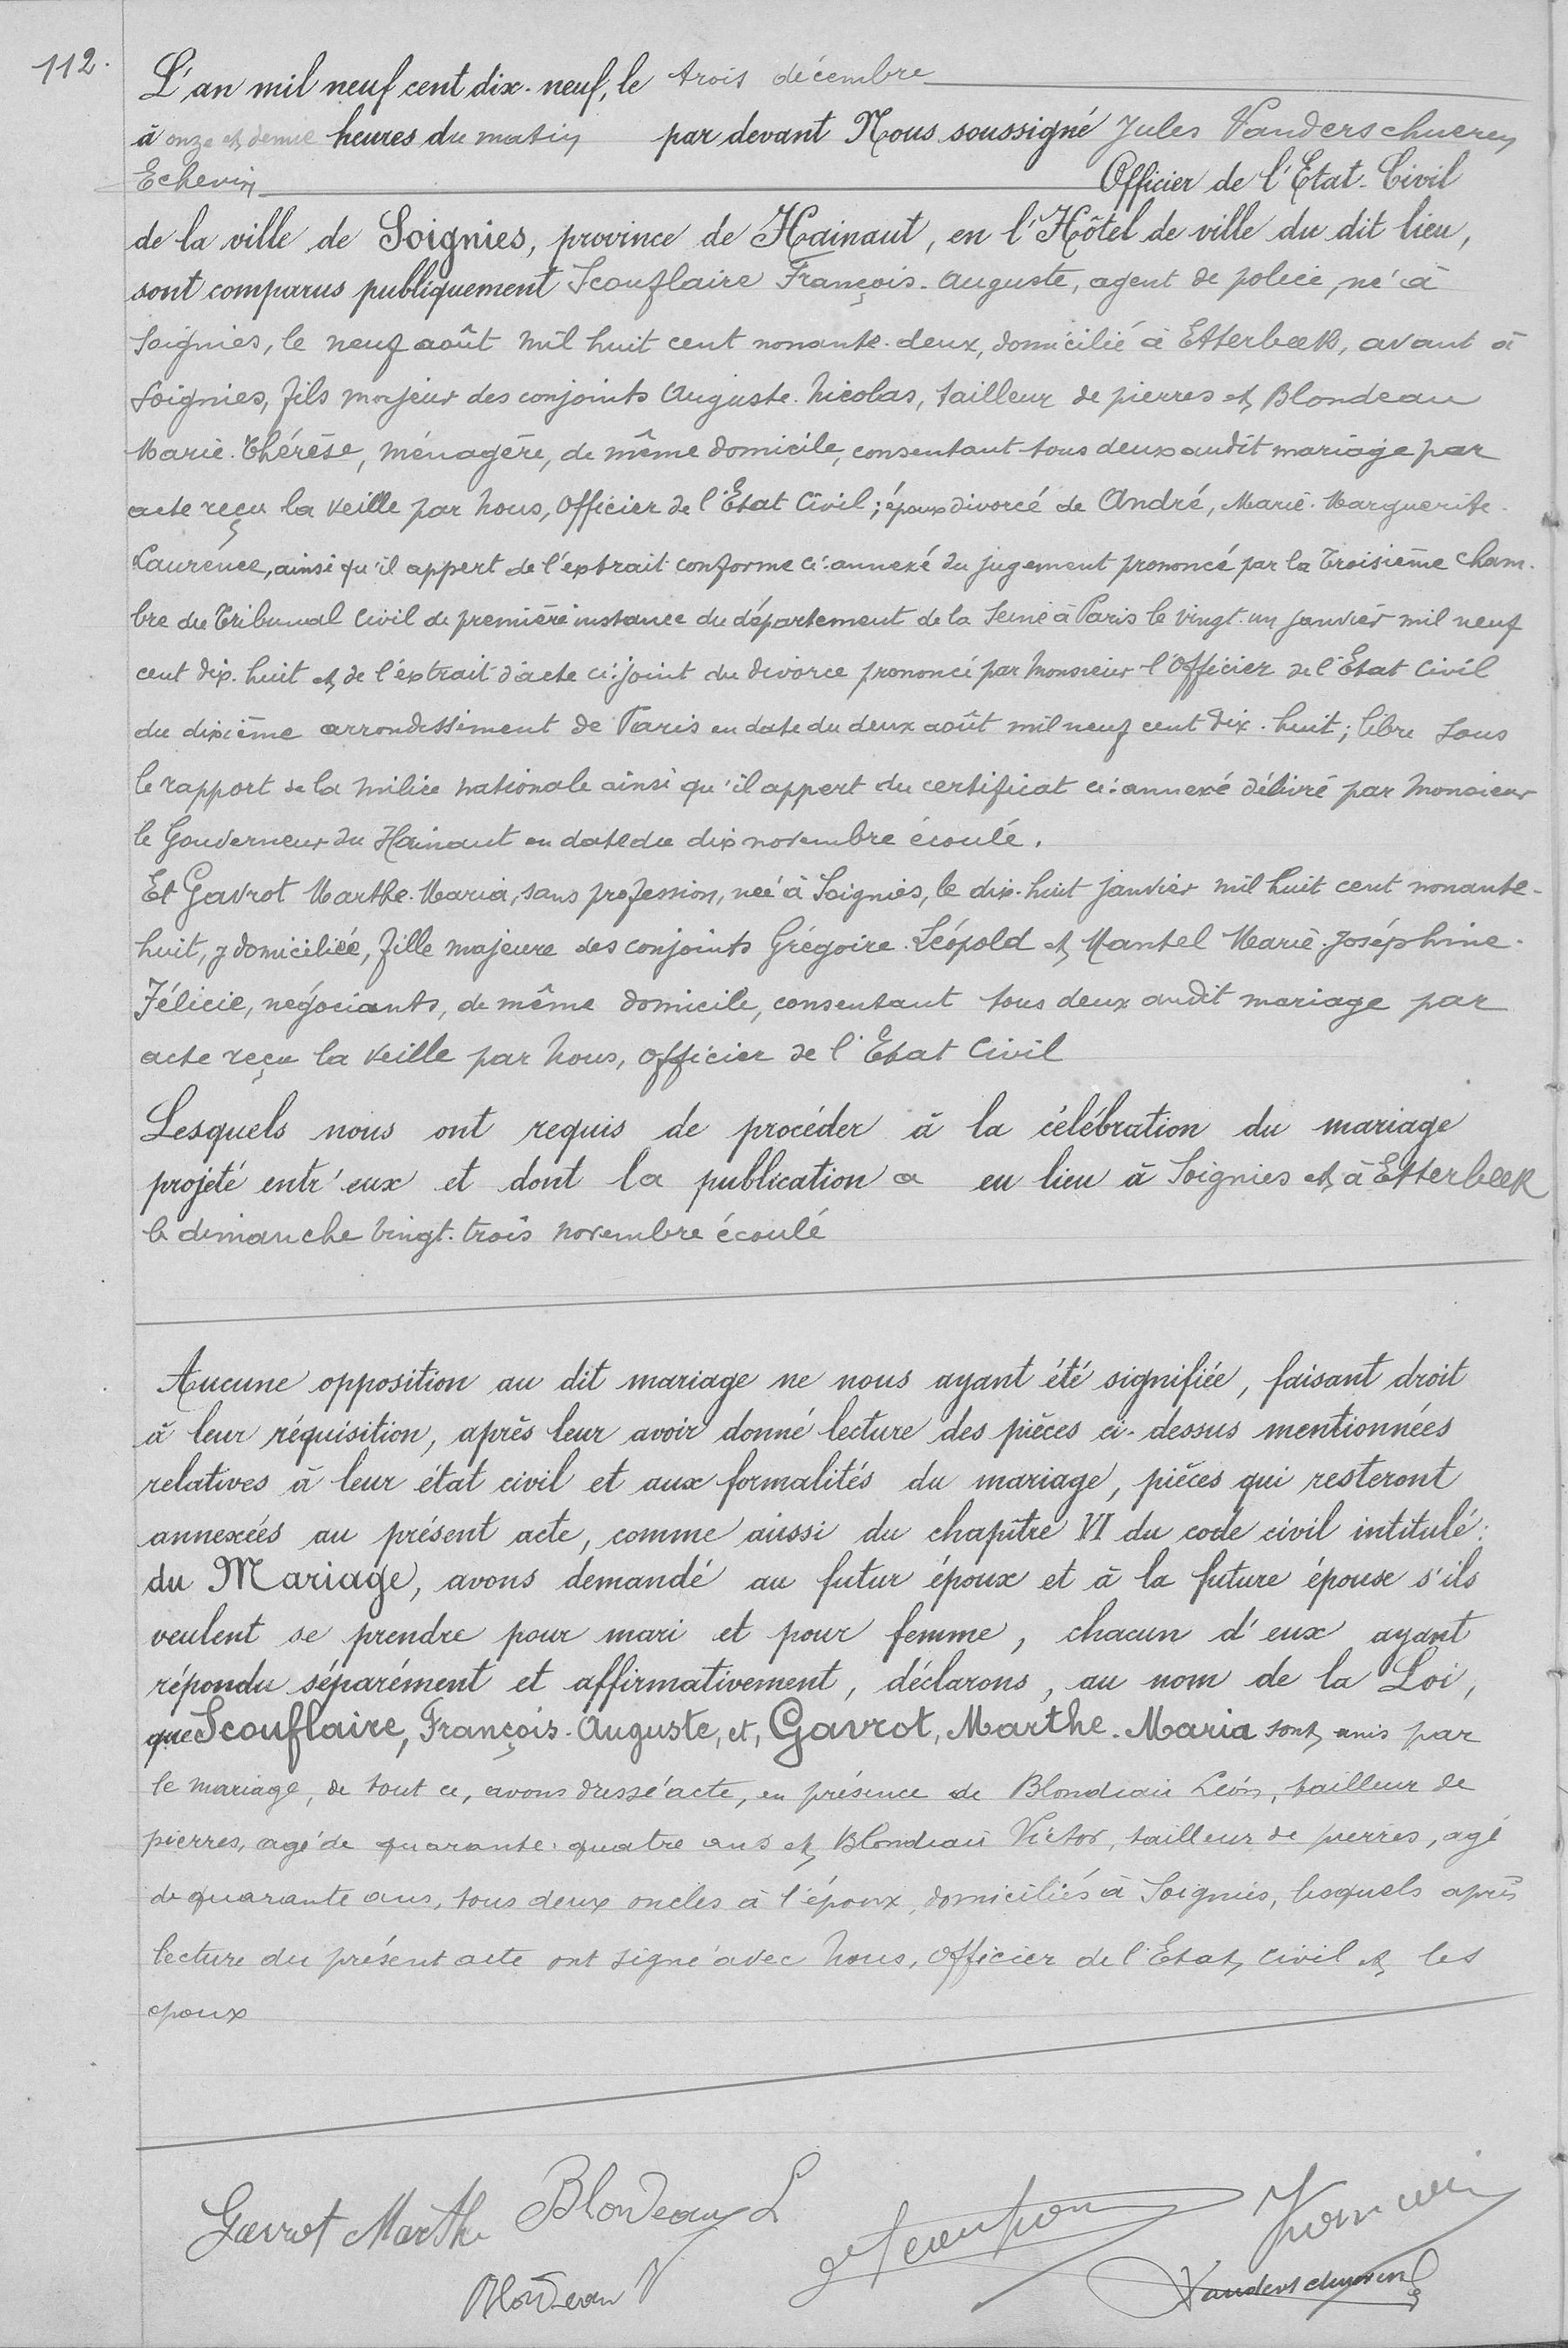 112.
L'an mil neuf cent dix-neuf, le trois décembre
à onze et demie heures du matin par devant Nous soussigné Jules Vanderschueren
Echevin Officier de l'Etat-Civil
de la ville de Soignies, province de Hainaut, en l'Hôtel de ville du dit lieu,
sont comparus publiquement Scouflaire François-Auguste, agent de police, né à
Soignies, le neuf août mil huit cent nonante-deux, domicilié à Etterbeek, avant à
Soignies, fils majeur des conjoints Auguste-Nicolas, tailleur de pierres et Blondeau
Marie-Thérèse, ménagère, de même domicile, consentant tous deux audit mariage par
acte reçu la veille par Nous, Officier de l'Etat Civil; époux divorcé de André, Marie-Marguerite-
Laurence, ainsi qu'il appert de l'extrait conforme ci-annexé du jugement prononcé par la Troisième cham-
bre du Tribunal Civil de première instance du département de la Seine à Paris le vingt-un janvier mil neuf
cent dix-huit et de l'extrait d'acte ci-joint du divorce prononcé par Monsieur l'Officier de l'Etat Civil
du dixième arrondissement de Paris en date du deux août mil neuf cent dix-huit; libre sous
le rapport de la milice nationale ainsi qu'il appert du certificat ci-annexé délivré par Monsieur
le Gouverneur du Hainaut en date du dix novembre écoulé.
Et Gavrot Marthe-Maria, sans profession, née à Soignies, le dix-huit janvier mil huit cent nonante-
huit, y domiciliée, fille majeure des conjoints Grégoire-Léopold et Mantel Marie-Joséphine-
Félicie, négociants, de même domicile, consentant tous deux audit mariage par
acte reçu la veille par Nous, Officier de l'Etat Civil
Lesquels nous ont requis de procéder à la célébration du mariage
projeté entr'eux et dont la publication a eu lieu à Soignies et à Etterbeek
le dimanche vingt-trois novembre écoulé
Aucune opposition au dit mariage ne nous ayant été signifiée, faisant droit
à leur réquisition, après leur avoir donné lecture des pièces ci-dessus mentionnées
relatives à leur état civil et aux formalités du mariage, pièces qui resteront
annexées au présent acte, comme aussi du chapitre VI du code civil intitulé:
du Mariage, avons demandé au futur époux et à la future épouse s'ils
veulent se prendre pour mari et pour femme, chacun d'eux ayant
répondu séparément et affirmativement, déclarons, au nom de la Loi,
que Scouflaire, François-Auguste, et, Gavrot, Marthe-Maria sont unis par
le mariage, de tout ce, avons dressé acte, en présence de Blondeau Léon, tailleur de
pierres, agé de quarante-quatre ans et Blondeau Victor, tailleur de pierres, agé
de quarante ans, tous deux oncles à l'époux, domiciliés à Soignies, lesquels après
lecture du présent acte ont signé avec Nous, Officier de l'Etat Civil et les
époux
Gavrot Marthe Blondeau L
Blondeau V Vanderschueren